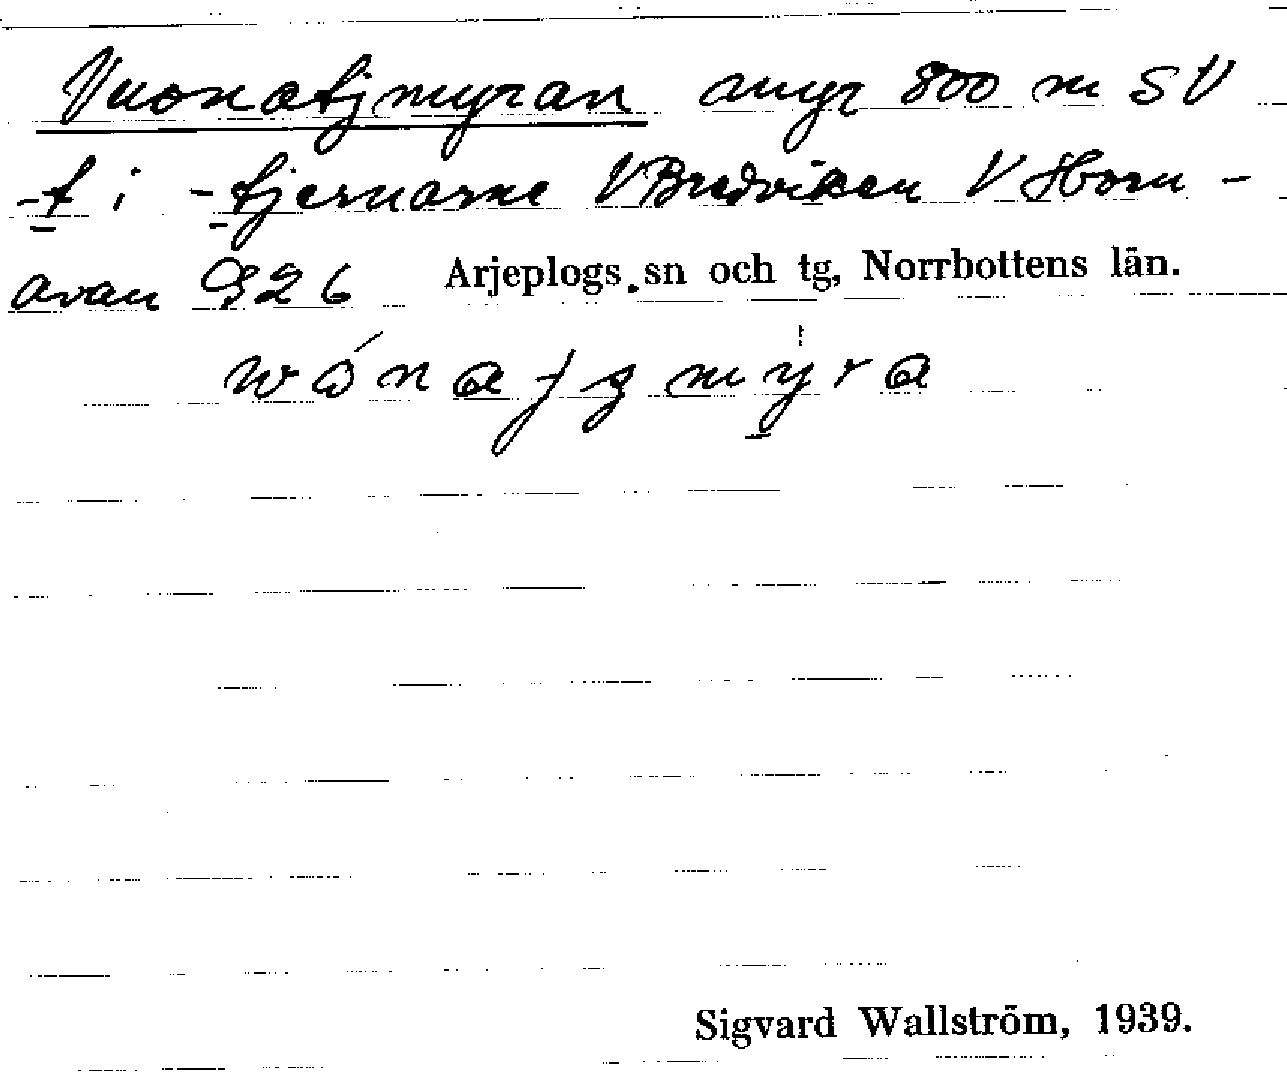 Vuonatjmyran myr 800 m SV
-t i -tjernarne V Bredviken V Horn-
avan G26 Arjeplogs sn och tg, Norrbottens län.
wónaʃʒmyra
Sigvard Wallström, 1939.